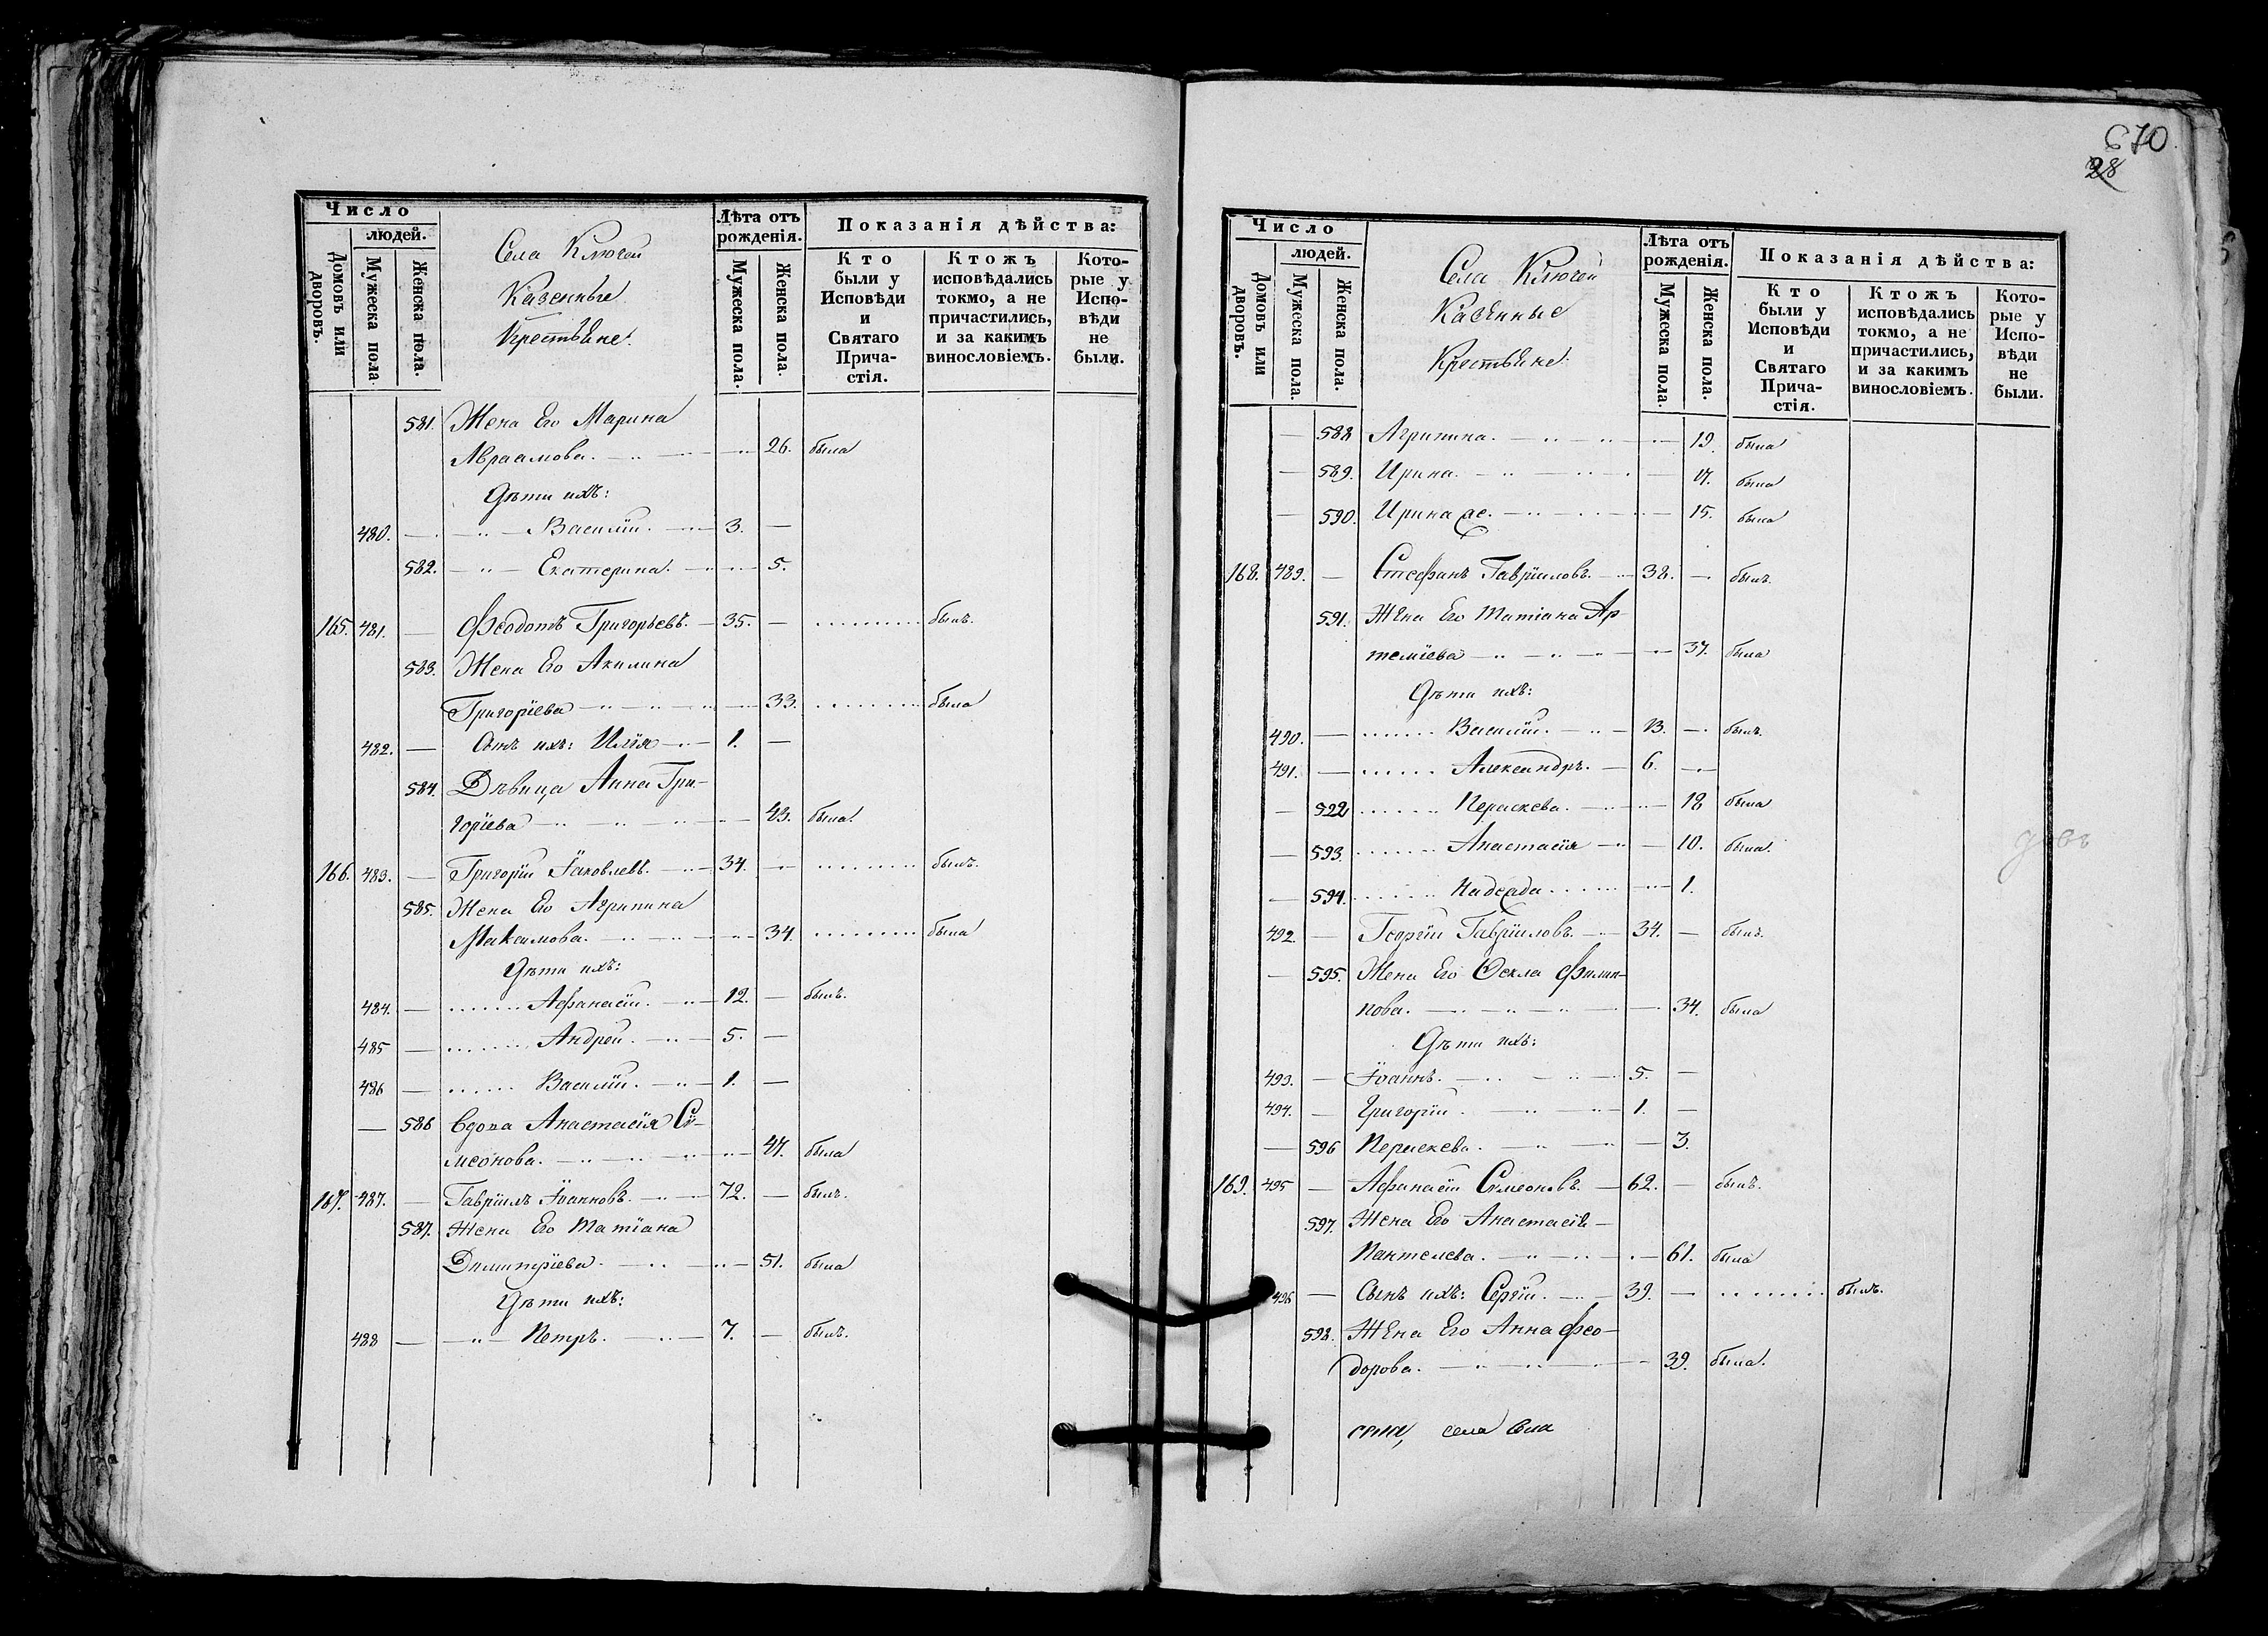 Число
людей.
Домовъ или дворовъ.
Мужеска пола.
Женска пола.
Села Ключей
Казенные
Крестьяне.
Лѣта отъ рожденія.
Мужеска пола.
Женска пола.
Показанія дѣйства:
Кто были у Исповѣди и Святаго Прича-стія.
Ктожъ исповѣдались токмо, а не причастились, и за какимъ винословіемъ.
Кото-рые у Испо-вѣди не были.
581. Жена Его Марина
Авраамова. 26. была
Дѣти ихъ:
480. — Василій. 3. —
582. — Екатерина. 5.
165. 481. — Феодотъ Григорьевъ. 35. — былъ.
583. Жена Его Акилина
Григоріева 33. была
482. — Сынъ ихъ: Илія 1. —
584. Дѣвица Анна Гри-
горіева 43. была.
166. 483. — Григорій Іаковлевъ. 34. былъ.
585. Жена Его Агрипина
Максимова. 34. была
Дѣти ихъ:
484. — Афанасій. 12. — былъ.
485 — Андрей. 5. —
486 — Василій. 1. —
— 586 Вдова Анастасія Си-
меонова. 47. была
167. 487. — Гавріилъ Іоанновъ. 72. — былъ.
587. Жена Его Татіана
Димитріева. 51. была
Дѣти ихъ:
488 — Петръ. 7. — былъ.
670.
28
Число
людей.
Домовъ или дворовъ.
Мужеска пола.
Женска пола.
Села Ключей
Казенные
Крестьяне.
Лѣта отъ рожденія.
Мужеска пола.
Женска пола.
Показанія дѣйства:
Кто были у Исповѣди и Святаго Прича-стія.
Ктожъ исповѣдались токмо, а не причастились, и за какимъ винословіемъ.
Кото-рые у Испо-вѣди не были.
— 588 Агрипина. 19. была
— 589. Ирина. 17. была
— 590. Ирина же. 15. была
168. 489. — Стефанъ Гавріиловъ. 38. — былъ.
591. Жена Его Татіана Ар-
теміева 37. была
Дѣти ихъ:
490. — Василій. 13. — былъ.
491. — Александръ. 6. —
— 592 Пераскева. 12 была
— 593. Анастасія 10. была.
— 594. Надежда 1.
492. — Георгій Гавріиловъ. 34. — былъ.
— 595. Жена Его Фекла Филип-
пова. 34. была
Дѣти ихъ:
493. — Іоаннъ. 5. —
494. — Григорій. 1. —
— 596 Пераскева. 3.
169. 495 — Афанасій Симеоновъ. 62. — былъ.
597. Жена Его Анастасія
Пантелева. 61. была
496 — Сынъ ихъ: Сергій. 39. — былъ.
598. Жена Его Анна Фео-
дорова. 39. была.
села, села села